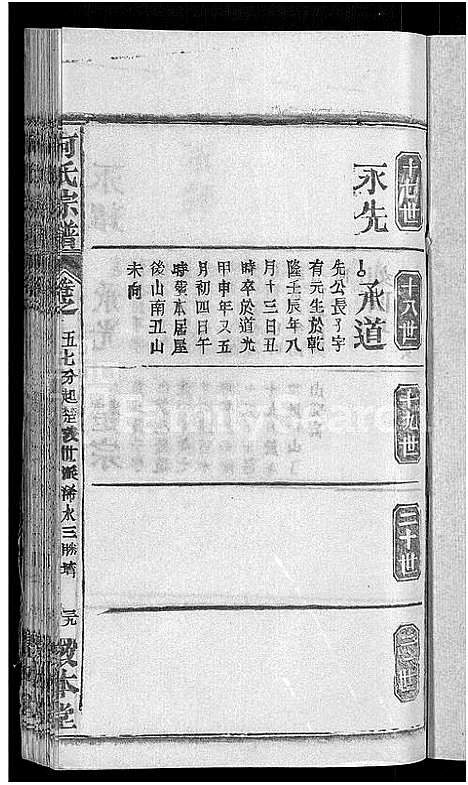 十七世
永先
十八世
承道
先公長子字
有元生於乾
隆壬辰年八
月十三日丑
時卒於道光
甲申年又五
月初四日午
時塟本居屋
後山南丑山
未向
十九世
二十世
廿一世
何氏宗譜
卷之
五七分起楚茂世派浠水三勝塆
三九
敦本堂
FamilySearch